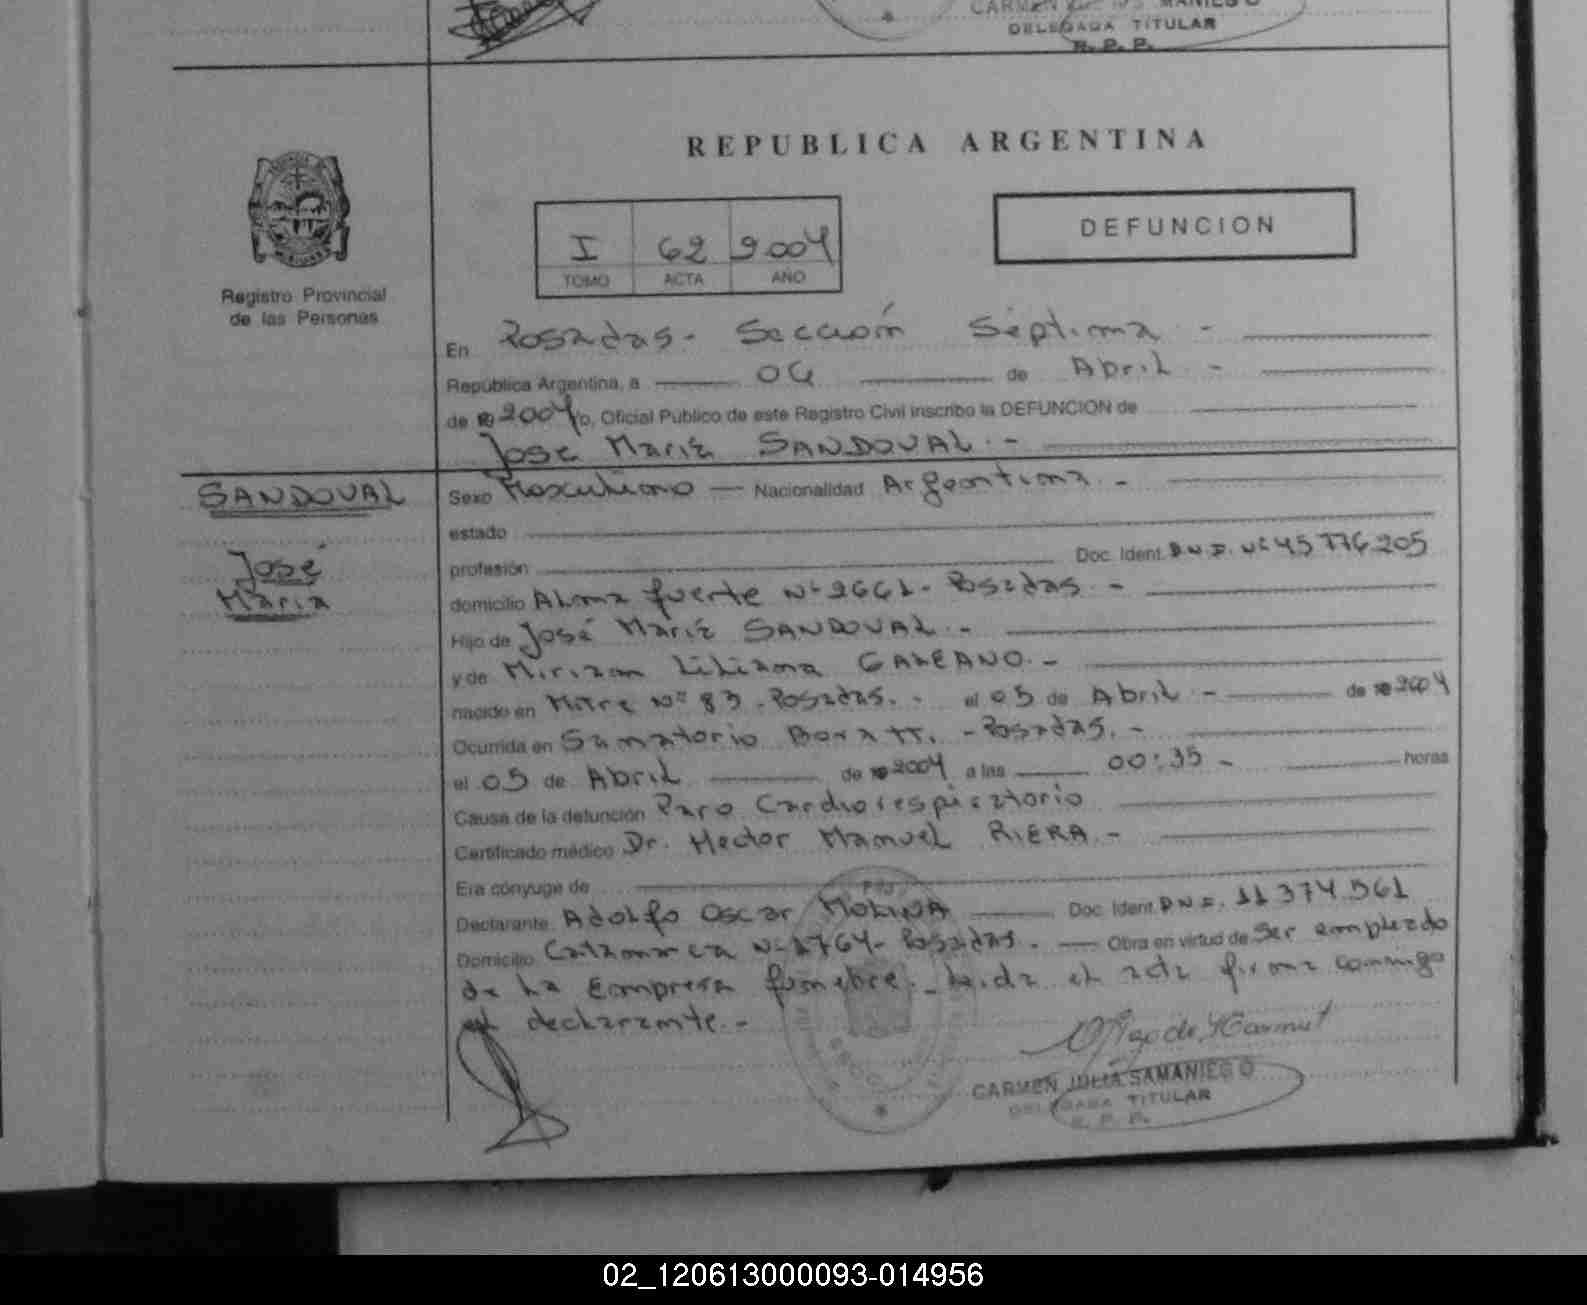 CARMEN
DELEGADA TITULAR
R. P. P.
REPUBLICA ARGENTINA
I 62 2004
TOMO ACTA AÑO
DEFUNCION
Registro Provincial
de las Personas
En Posadas - Sección Séptima -
República Argentina, a 06 de Abril -
de 2004 yo, Oficial Público de este Registro Civil inscribo la DEFUNCION de
José María SANDOVAL. -
SANDOVAL
José
María
Sexo Masculino — Nacionalidad Argentina -
estado
profesión Doc. Ident. D.N.I. Nº 45 776 205
domicilio Alma fuerte Nº 2661 - Posadas. -
Hijo de José María SANDOVAL. -
y de Mirian Liliana GALEANO. -
nacido en Mitre Nº 83 - Posadas. - el 05 de Abril - de 2004
Ocurrida en Sanatorio Boratti. - Posadas. -
el 05 de Abril de 2004 a las 00:35 - horas
Causa de la defunción Paro Cardiorespiratorio
Certificado médico Dr. Hector Manuel RIERA. -
Era cónyuge de
Declarante Adolfo Oscar MOLINA Doc. Ident. D.N.I. 11 374.561
Domicilio Catamarca Nº 1764 - Posadas. - Obra en virtud de Ser empleado
de la Empresa funebre. - Leida el acta firma conmigo
el declarante. -
CARMEN JULIA SAMANIEGO
DELEGADA TITULAR
R. P. P.
02_120613000093-014956